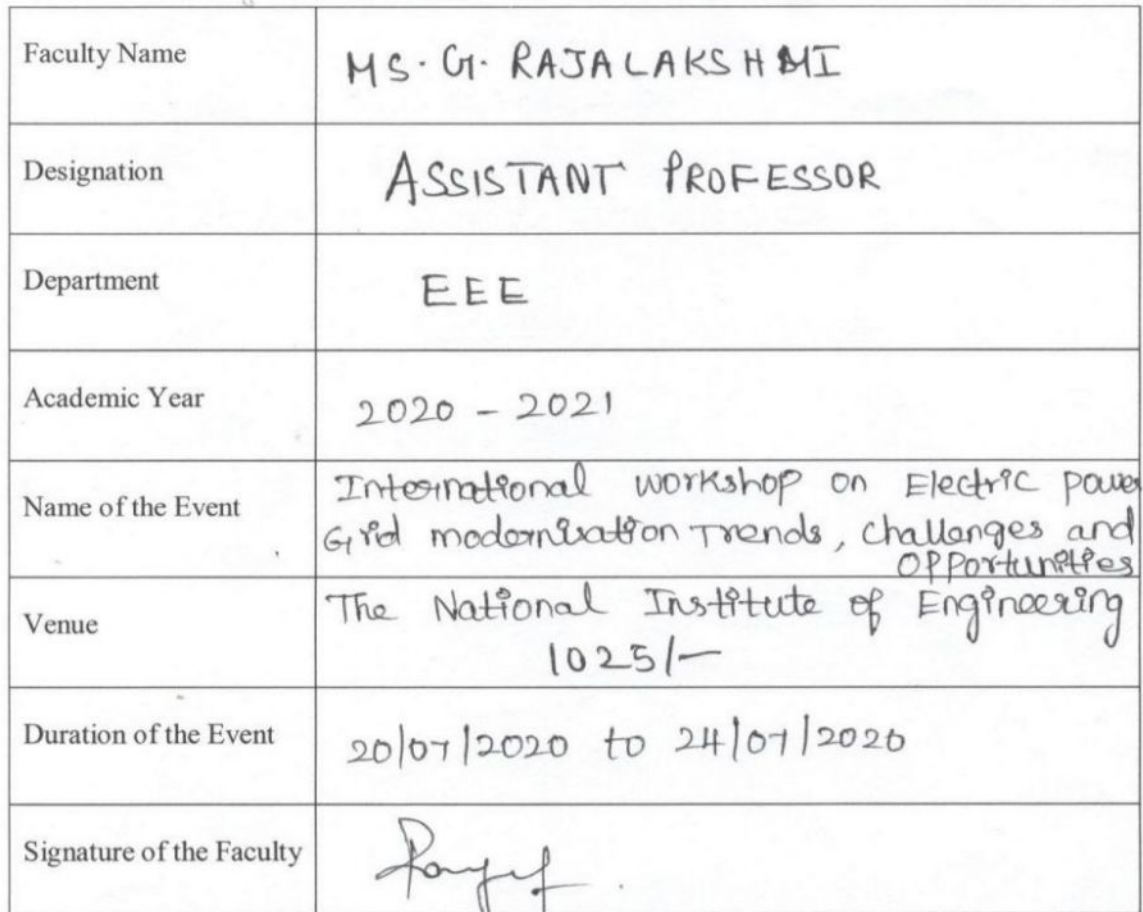 Faculty Name
MS. G. RAJALAKSHMI
Designation
ASSISTANT PROFESSOR
Department
EEE
Academic Year
2020 - 2021
Name of the Event
International workshop on Electric power
Grid modernisation Trends, challenges and
OPPortunities
Venue
The National Institute of Engineering
1025/-
Duration of the Event
20/07/2020 to 24/07/2020
Signature of the Faculty